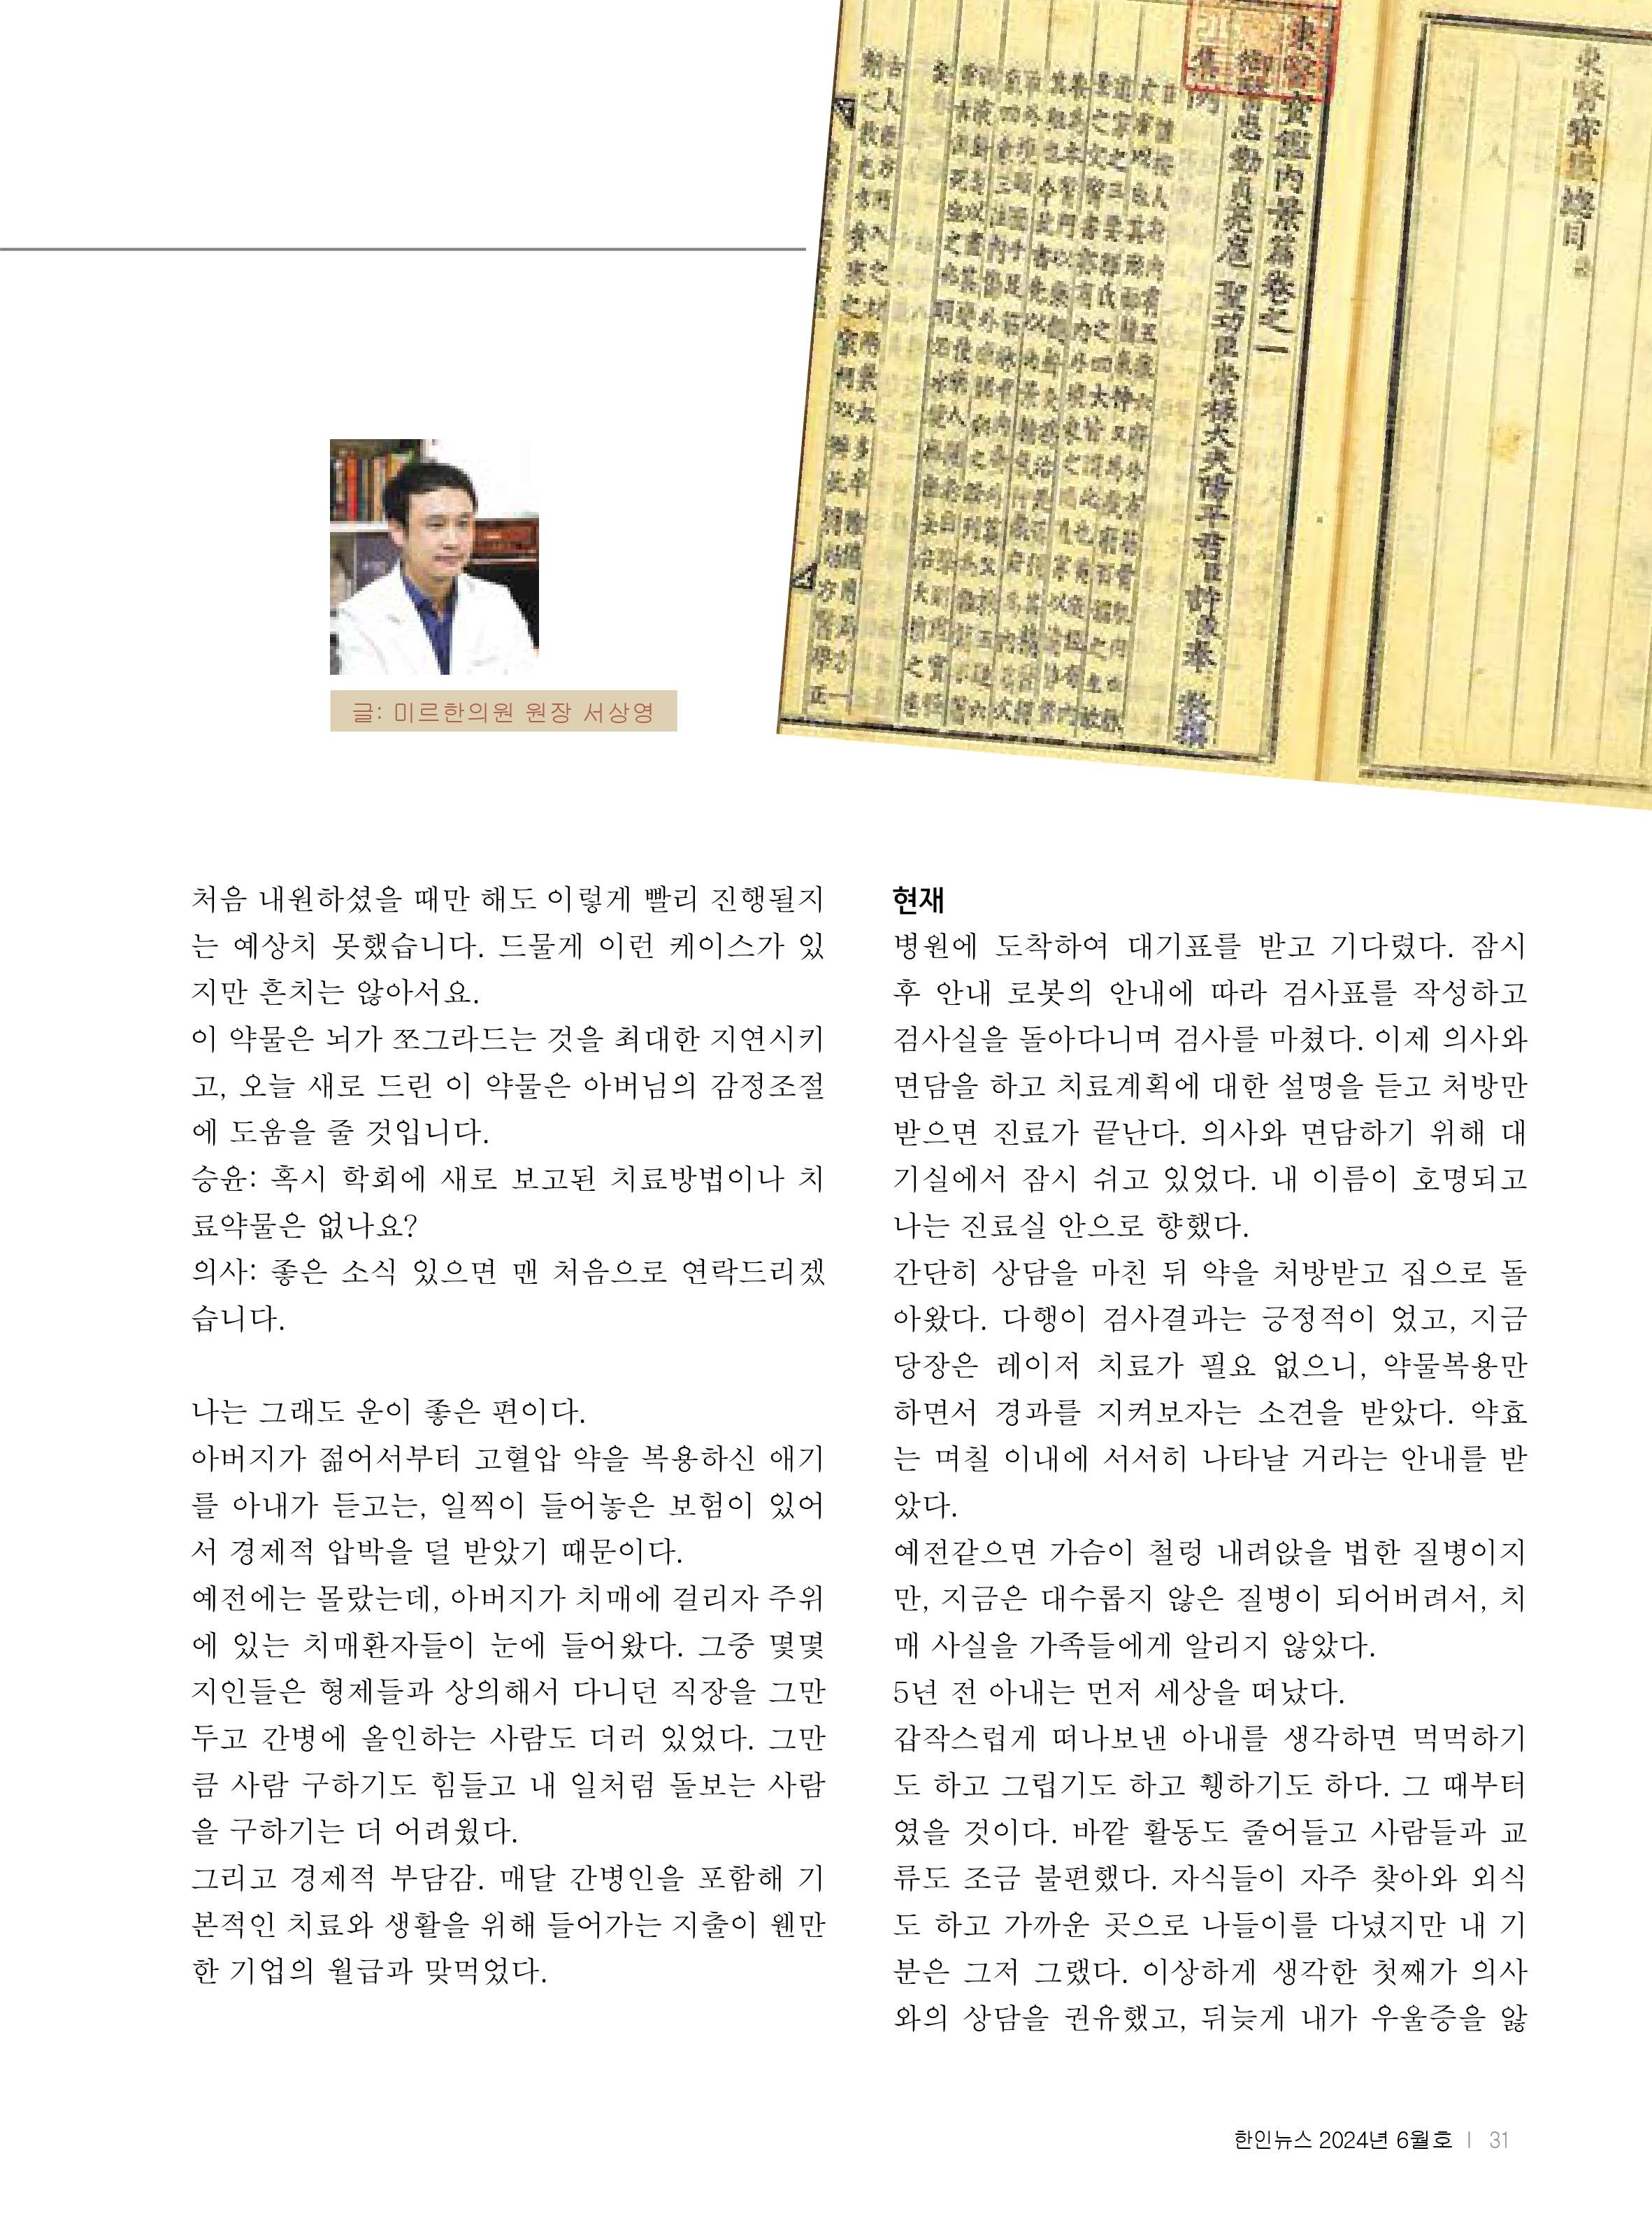 東醫寶鑑內景篇卷之一
御醫忠勤貞亮扈聖功臣崇祿大夫陽平君臣許浚奉教撰
集
東醫寶鑑總目
글: 미르한의원 원장 서상영
처음 내원하셨을 때만 해도 이렇게 빨리 진행될지
는 예상치 못했습니다. 드물게 이런 케이스가 있
지만 흔치는 않아서요.
이 약물은 뇌가 쪼그라드는 것을 최대한 지연시키
고, 오늘 새로 드린 이 약물은 아버님의 감정조절
에 도움을 줄 것입니다.
승윤: 혹시 학회에 새로 보고된 치료방법이나 치
료약물은 없나요?
의사: 좋은 소식 있으면 맨 처음으로 연락드리겠
습니다.
나는 그래도 운이 좋은 편이다.
아버지가 젊어서부터 고혈압 약을 복용하신 얘기
를 아내가 듣고는, 일찍이 들어놓은 보험이 있어
서 경제적 압박을 덜 받았기 때문이다.
예전에는 몰랐는데, 아버지가 치매에 걸리자 주위
에 있는 치매환자들이 눈에 들어왔다. 그중 몇몇
지인들은 형제들과 상의해서 다니던 직장을 그만
두고 간병에 올인하는 사람도 더러 있었다. 그만
큼 사람 구하기도 힘들고 내 일처럼 돌보는 사람
을 구하기는 더 어려웠다.
그리고 경제적 부담감. 매달 간병인을 포함해 기
본적인 치료와 생활을 위해 들어가는 지출이 웬만
한 기업의 월급과 맞먹었다.
현재
병원에 도착하여 대기표를 받고 기다렸다. 잠시
후 안내 로봇의 안내에 따라 검사표를 작성하고
검사실을 돌아다니며 검사를 마쳤다. 이제 의사와
면담을 하고 치료계획에 대한 설명을 듣고 처방만
받으면 진료가 끝난다. 의사와 면담하기 위해 대
기실에서 잠시 쉬고 있었다. 내 이름이 호명되고
나는 진료실 안으로 향했다.
간단히 상담을 마친 뒤 약을 처방받고 집으로 돌
아왔다. 다행이 검사결과는 긍정적이 었고, 지금
당장은 레이저 치료가 필요 없으니, 약물복용만
하면서 경과를 지켜보자는 소견을 받았다. 약효
는 며칠 이내에 서서히 나타날 거라는 안내를 받
았다.
예전같으면 가슴이 철렁 내려앉을 법한 질병이지
만, 지금은 대수롭지 않은 질병이 되어버려서, 치
매 사실을 가족들에게 알리지 않았다.
5년 전 아내는 먼저 세상을 떠났다.
갑작스럽게 떠나보낸 아내를 생각하면 먹먹하기
도 하고 그립기도 하고 휑하기도 하다. 그 때부터
였을 것이다. 바깥 활동도 줄어들고 사람들과 교
류도 조금 불편했다. 자식들이 자주 찾아와 외식
도 하고 가까운 곳으로 나들이를 다녔지만 내 기
분은 그저 그랬다. 이상하게 생각한 첫째가 의사
와의 상담을 권유했고, 뒤늦게 내가 우울증을 앓
한인뉴스 2024년 6월호 | 31